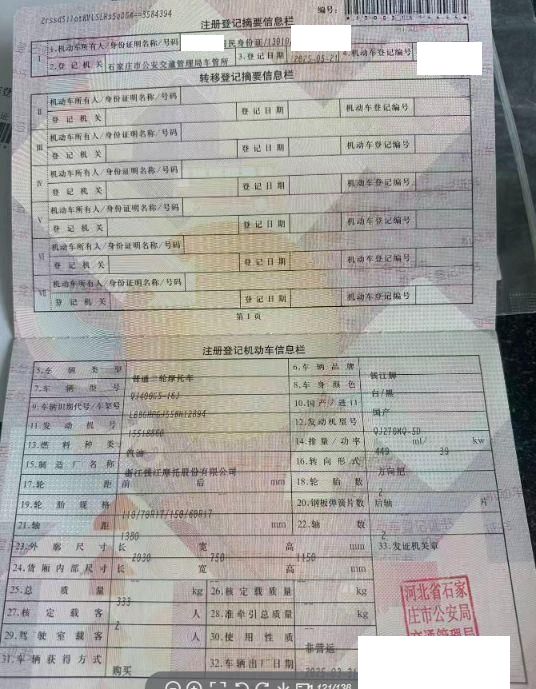 编号:
注册登记摘要信息栏
I 1.机动车所有人/身份证明名称/号码 民身份证/1301
2.登记机关 石家庄市公安交通管理局车管所 3.登记日期 2025-05-21 4.机动车登记编号
转移登记摘要信息栏
II 机动车所有人/身份证明名称/号码
登记机关 登记日期 机动车登记编号
III 机动车所有人/身份证明名称/号码
登记机关 登记日期 机动车登记编号
IV 机动车所有人/身份证明名称/号码
登记机关 登记日期 机动车登记编号
V 机动车所有人/身份证明名称/号码
登记机关 登记日期 机动车登记编号
VI 机动车所有人/身份证明名称/号码
登记机关 登记日期 机动车登记编号
VII 机动车所有人/身份证明名称/号码
登记机关 登记日期 机动车登记编号
第1页
注册登记机动车信息栏
5.车辆类型 普通二轮摩托车 6.车辆品牌 钱江牌
7.车辆型号 8.车身颜色 白/黑
9.车辆识别代号/车架号 10.国产/进口 国产
11.发动机号 12.发动机型号
13.燃料种类 汽油 14.排量/功率 449 ml/ 39 kw
15.制造厂名称 浙江钱江摩托股份有限公司 16.转向形式 方向把
17.轮距 前 后 mm 18.轮胎数 2
19.轮胎规格 20.钢板弹簧片数 后轴 片
21.轴距 1380 mm 22.轴数 2
23.外廓尺寸 长 2030 宽 750 高 1150 mm 33.发证机关章
24.货厢内部尺寸 长 宽 高 mm
25.总质量 333 kg 26.核定载质量 kg
27.核定载客 2 人 28.准牵引总质量 kg
29.驾驶室载客 人 30.使用性质 非营运
31.车辆获得方式 购买 32.车辆出厂日期
河北省石家
庄市公安局
交通管理局
1 131/138